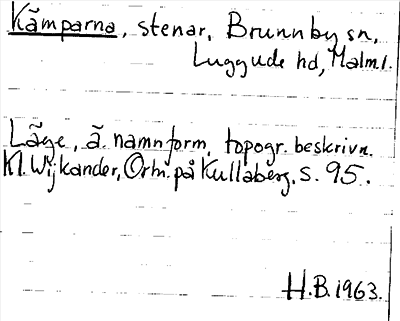 Kämparna, stenar, Brunnby sn,
Luggude hd, Malm l.
Läge, ä. namnform, topogr. beskrivn.
Kl. Wijkander, Ortn. på Kullaberg. s. 95.
H.B. 1963.